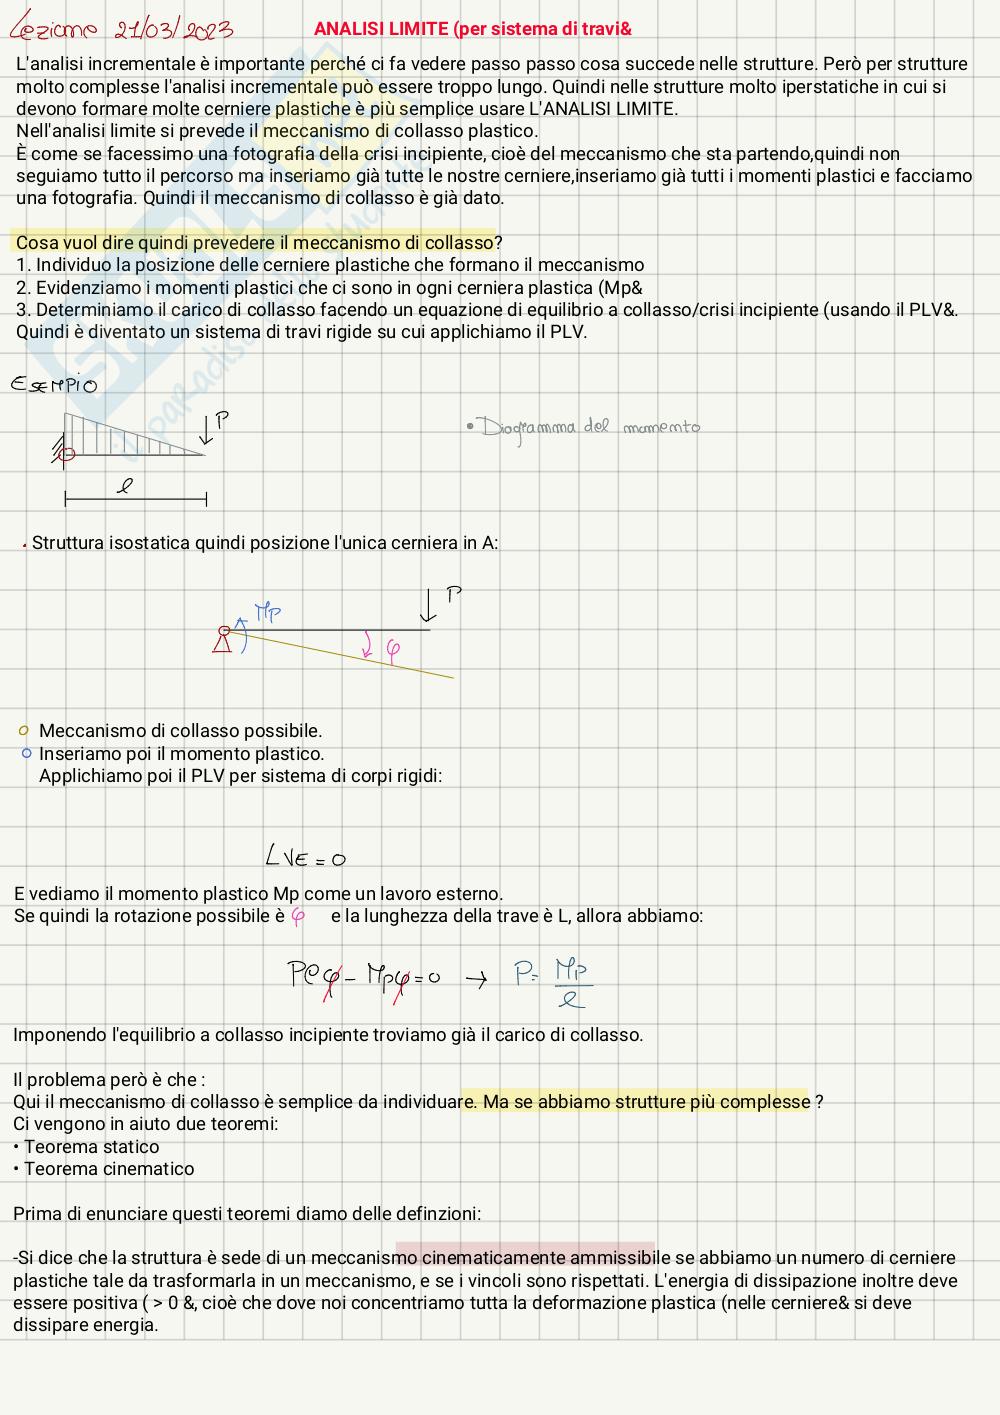 Lezione 21/03/2023 ANALISI LIMITE (per sistema di travi&
L'analisi incrementale è importante perché ci fa vedere passo passo cosa succede nelle strutture. Però per strutture
molto complesse l'analisi incrementale può essere troppo lungo. Quindi nelle strutture molto iperstatiche in cui si
devono formare molte cerniere plastiche è più semplice usare L'ANALISI LIMITE.
Nell'analisi limite si prevede il meccanismo di collasso plastico.
È come se facessimo una fotografia della crisi incipiente, cioè del meccanismo che sta partendo,quindi non
seguiamo tutto il percorso ma inseriamo già tutte le nostre cerniere,inseriamo già tutti i momenti plastici e facciamo
una fotografia. Quindi il meccanismo di collasso è già dato.
Cosa vuol dire quindi prevedere il meccanismo di collasso?
1. Individuo la posizione delle cerniere plastiche che formano il meccanismo
2. Evidenziamo i momenti plastici che ci sono in ogni cerniera plastica (Mp&
3. Determiniamo il carico di collasso facendo un equazione di equilibrio a collasso/crisi incipiente (usando il PLV&.
Quindi è diventato un sistema di travi rigide su cui applichiamo il PLV.
ESEMPIO
P
• Diagramma del momento
ℓ
. Struttura isostatica quindi posizione l'unica cerniera in A:
P
Mp
φ
Meccanismo di collasso possibile.
Inseriamo poi il momento plastico.
Applichiamo poi il PLV per sistema di corpi rigidi:
LVE = 0
E vediamo il momento plastico Mp come un lavoro esterno.
Se quindi la rotazione possibile è φ e la lunghezza della trave è L, allora abbiamo:
Pℓφ - Mpφ = 0 → P = Mp/ℓ
Imponendo l'equilibrio a collasso incipiente troviamo già il carico di collasso.
Il problema però è che :
Qui il meccanismo di collasso è semplice da individuare. Ma se abbiamo strutture più complesse ?
Ci vengono in aiuto due teoremi:
• Teorema statico
• Teorema cinematico
Prima di enunciare questi teoremi diamo delle definzioni:
-Si dice che la struttura è sede di un meccanismo cinematicamente ammissibile se abbiamo un numero di cerniere
plastiche tale da trasformarla in un meccanismo, e se i vincoli sono rispettati. L'energia di dissipazione inoltre deve
essere positiva ( > 0 &, cioè che dove noi concentriamo tutta la deformazione plastica (nelle cerniere& si deve
dissipare energia.